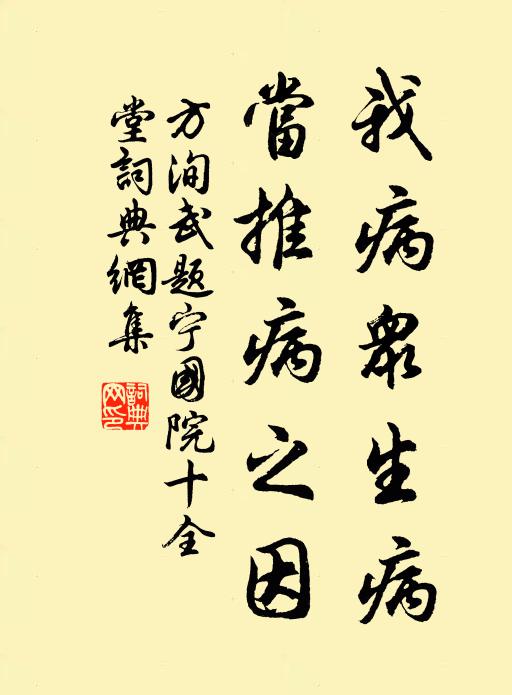 我病衆生病
當推病之因
方洵武題宁國院十全
堂詞典網集
詞典網印